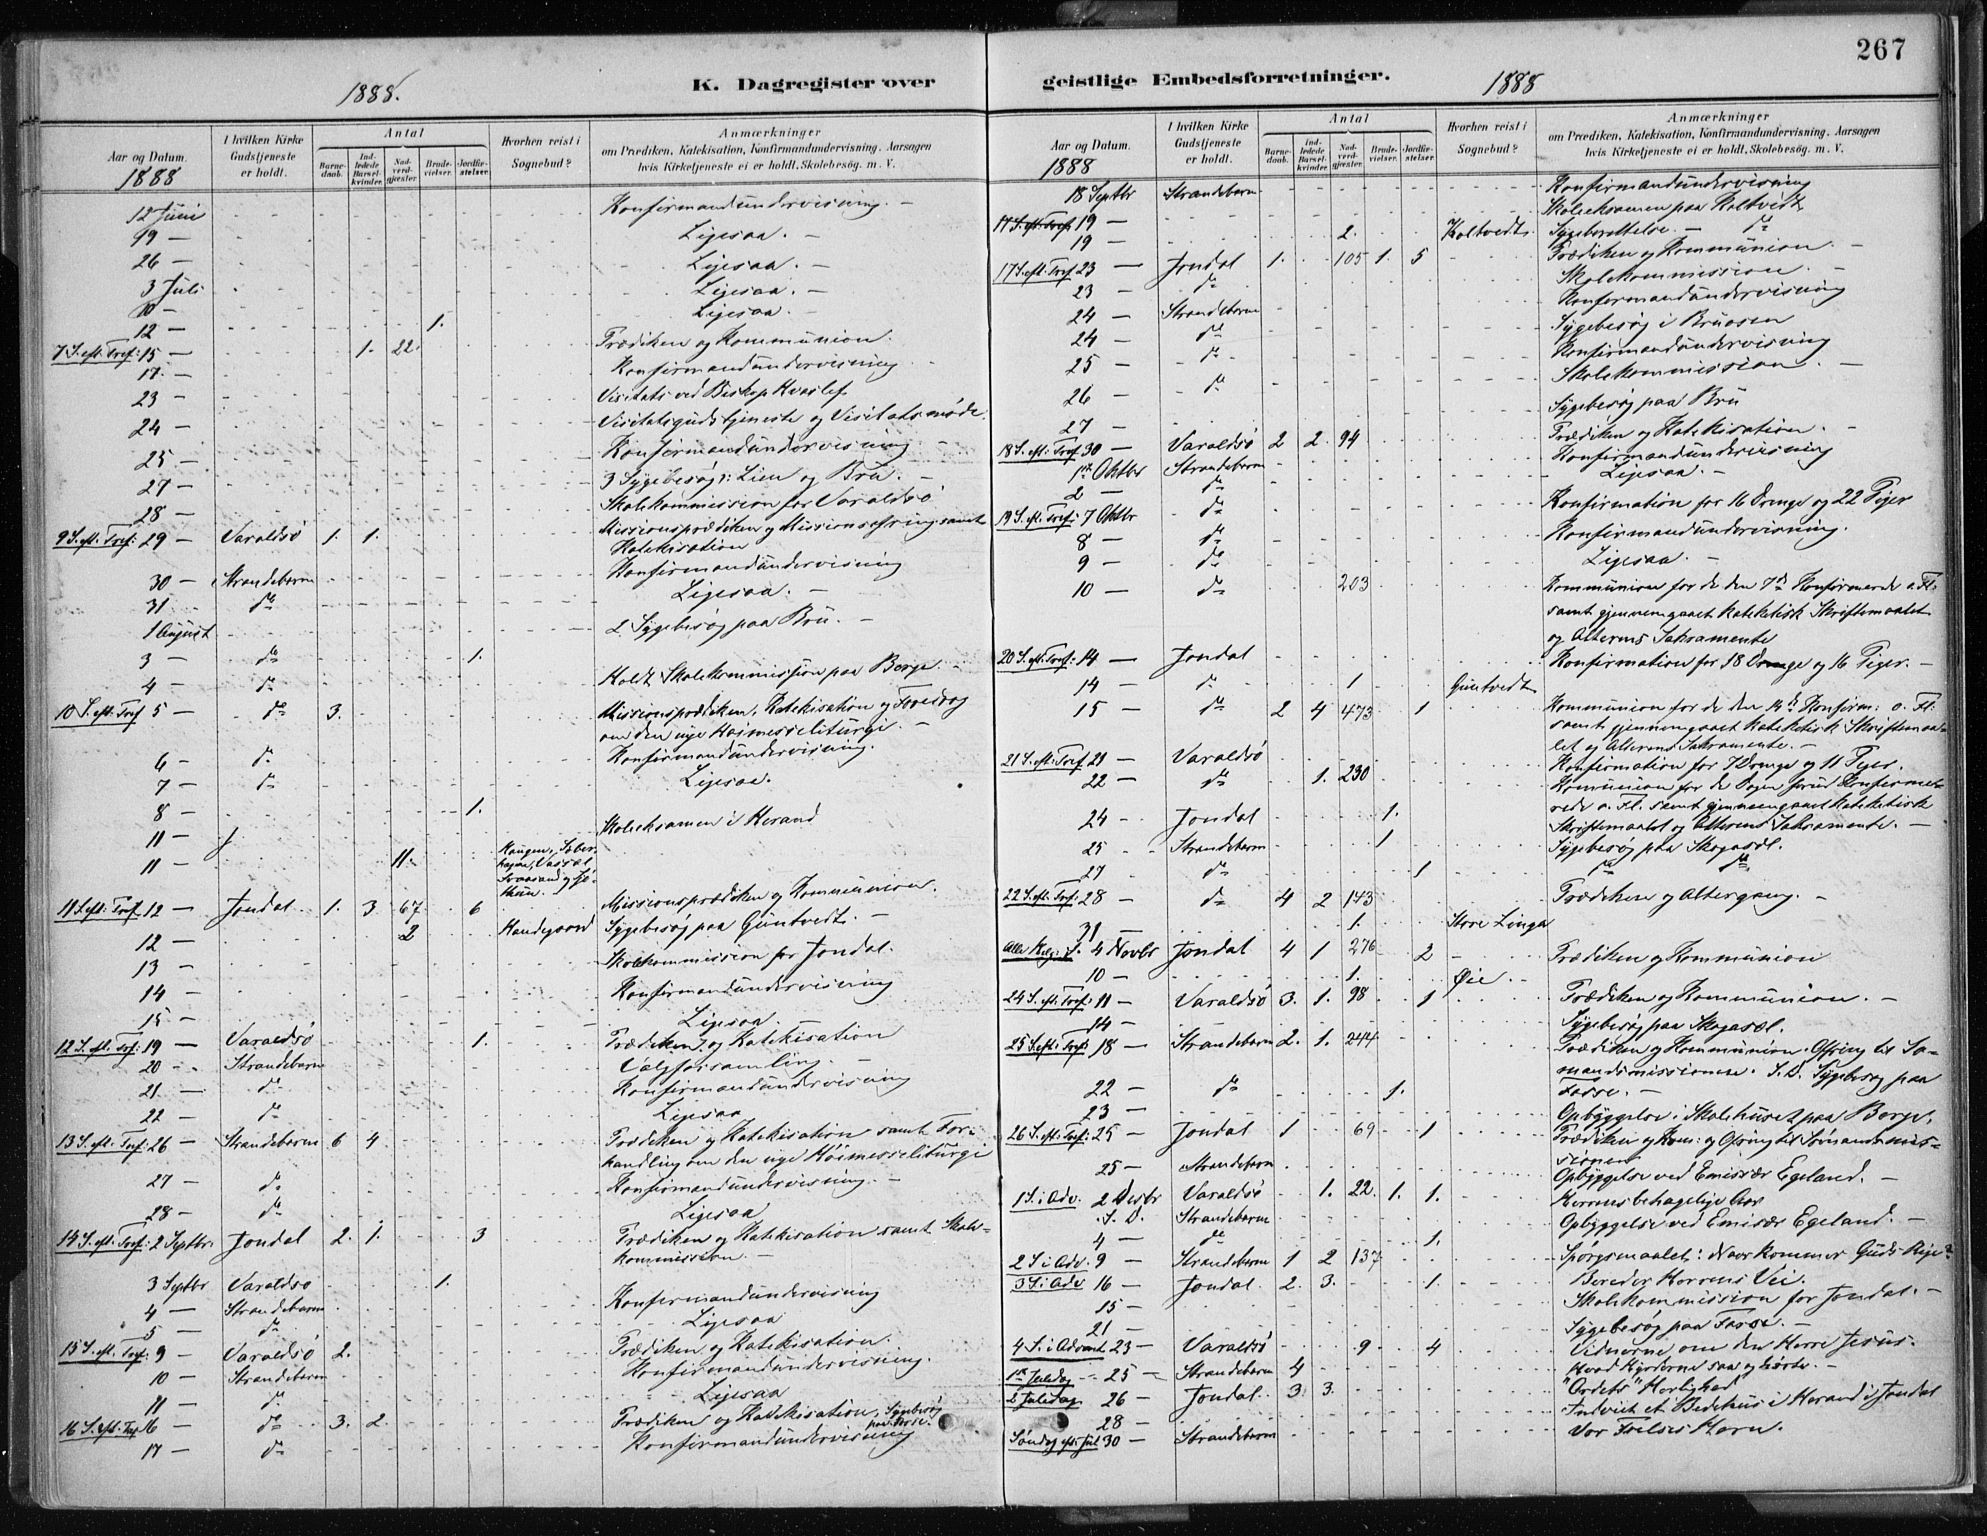 267
1888.
K. Dagregister over
geistlige Embedsforretninger.
1888
Aar og Datum.
1888
I hvilken Kirke Gudstjeneste er holdt.
Antal
Barnedaab.
Indledede Barselkvinder.
Nadverdgjæster.
Brudevielser.
Jordfæstelser.
Hvorhen reist i Sognebud?
Anmærkninger
om Prædiken, Katekisation, Konfirmandundervisning. Aarsagen
hvis Kirketjeneste ei er holdt. Skolebesög. m. V.
12 Juni Konfirmandundervisning. –
19 – Ligesaa. –
26 – Ligesaa. –
3 Juli Ligesaa. –
10 – Ligesaa. –
12 – 1.
7 S. eft. Tref: 15 – 1. 22. Prædiken og Kommunion.
17 – Konfirmandundervisning
23 – Visitats ved Biskop Hvoslef
24 – Visitatsgudstjeneste og Visitatsmøde.
25 – Konfirmandundervisning –
27 – 3 Sygebesøg i Lien og Brü. –
28 – Skolekommission for Varaldsö
9 S. eft. Tref: 29 – Varaldsö 1. 1. Missionsprædiken og Missionsofring samt
Katekisation
30 – Strandebarm Konfirmandundervisning
31 – do Ligesaa. –
1 August 2 Sygebesøg paa Brü. –
3 – do 1.
4 – do Holdt Skolekommission paa Berge. –
10 S. eft. Tref 5 – do 3. Missionsprædiken, Katekisation og Foredrag
om den nye Høimesseliturgi.
6 – do Konfirmandundervisning.
7 – do Ligesaa.
8 – 1.
11 – Skoleeksamen i Herand
11 – 11.
11 S. eft. Tref 12 – Jondal 1. 3 67 6 Missionsprædiken og Kommunion.
12 – 2 Sygebesøg paa Guntvedt. –
13 – Skolekommission for Jondal.
14 – Konfirmandundervisning
15 – Ligesaa
12 S. eft. Tref: 19 – Varaldsö 1. Prædiken og Katekisation
20 – Strandebarm Valgforsamling. –
21 – do Konfirmandundervisning
22 – do Ligesaa
13 S. eft. Tref: 26 – Strandebarm 6 4 Prædiken og Katekisation samt For-
handling om den nye Höimesseliturgi
27 – do Konfirmandundervisning. –
28 – do Ligesaa
14 S. eft. Tref: 2 Septbr. Jondal 2. 1. 3 Prædiken og Katekisation samt Skole-
kommission. –
3 Septbr Varaldsö 1.
4 – Strandebarm Konfirmandundervisning
5 – do Ligesaa
15 S. eft. Tref: 9 – Varaldsö 2. Prædiken og Katekisation.
10 – Strandebarm Konfirmandundervisning.
11 – do Ligesaa
16 S. eft. Tref 16 – do 3. 2. Prædiken og Katekisation, Sygebesøg
17 – do Konfirmandundervisning
Aar og Datum.
1888
I hvilken Kirke Gudstjeneste er holdt.
Antal
Barnedaab.
Indledede Barselkvinder.
Nadverdgjæster.
Brudevielser.
Jordfæstelser.
Hvorhen reist i Sognebud?
Anmærkninger
om Prædiken, Katekisation, Konfirmandundervisning. Aarsagen
hvis Kirketjeneste ei er holdt. Skolebesög. m. V.
18 Septbr Strandebarm Konfirmandundervisning
17 S. eft. Tref: 19 – Skoleeksamen paa Holtvedt
19 – 2. Holtvedt. Sygeberettelse. – do
17 S. eft. Tref 23 – Jondal 1. 105 1. 5 Prædiken og Kommunion. –
23 – do Skolekommission. –
24 – Strandebarm Konfirmandundervisning
24 – do Sygebesøg i Bruosen
25 – do Konfirmandundervisning
26 – do Skolekommission. –
27 – Sygebesøg paa Brü
18 S. eft. Tref 30 – Varaldsö 2 2. 94 Prædiken og Katekisation. –
1ste Oktbr Strandebarm Konfirmandundervisning
2 – do Ligesaa. –
19 S. eft. Tref: 7 Oktbr do Konfirmation for 16 Drenge og 22 Piger
8 – do Konfirmandundervisning.
9 – do Ligesaa. –
10 – do 203 Kommunion for de den 7de Konfirmerede o. Fl.
samt gjennemgaaet kateketisk Skriftemaalet
og Alterens Sakramente
20 S. eft. Tref: 14 – Jondal Konfirmation for 18 Drenge og 16 Piger. –
14 – do 1 Guntvedt
15 – do 2 4 473 1 Kommunion for de den 14de Konfirm: o. Fl:
samt gjennemgaaet katekisk Skriftemaa-
let og Alterens Sakramente. –
21 S. eft: Tref 21 – Varaldsö Konfirmation for 7 Drenge og 11 Piger.
22 – do 1. 230 Kommunion for de Dagen forud Konfirme-
rede o. Fl. samt gjennemgaaet katekisk
24 – Jondal 1. Skriftemaalet og Alterens Sakramente. –
25 – Strandebarm 1 Sygebesøg paa Skogasel.
27 – do 1 do do
22 S. eft. Tref: 28 – do 4 2 143 Prædiken og Altergang. –
31 – 1. Store Linga
Alle Helg: S. 4 Novbr Jondal 4 1 276 2 Prædiken og Kommunion
10 – 1. Øie
24 S. eft. Tref: 11 – Varaldsö 3. 1. 98 1 Prædiken og Kommunion. –
14 – Sygebesøg paa Skogasel.
25 S. eft. Tref: 18 – Strandebarm 2. 1. 244 Prædiken og Kommunion. Ofring til Sø-
mandsmissionen. S. D. Sygebesøg paa
22 – do 1. Fosse. –
23 – Opbyggelse i Skolehuset paa Berge.
26 S. eft. Tref: 25 – Jondal 1 69 1 Prædiken og Kom: og Ofring til Sømandsmis-
sionen
25 – Strandebarm Opbyggelse ved Emissær Egeland. –
1 S. i Adv. 2 Desbr Varaldsö 1. 22. 1. 1. Herrens behagelige Aar
S. D. Strandebarm Opbyggelse ved Emisær Egeland. –
4 – do 1.
2 S i Adv. 9 – Strandebarm 1 2 137 Spørgsmaalet: Naar kommer Guds Rige?
3 S. i Adv 16 – Jondal. 2. 3. 1. Bereder Herrens Vei.
15 – Skolekommission for Jondal. –
21 – Sygebesøg paa Fosse. –
4 S. i Advent 23 – Varaldsö 9 4 Vidnerne om den Herre Jesus.
1ste Juledag 25 – Strandebarm 4 Hvad Hyrderne saa og hørte. –
2 Juledag 26 – Jondal. 3. 3. "Ordets" Herlighed
28 – Indviet et Bedehus i Herand i Jondal
Søndag eft. Jul 30 – Strandebarm Vor Frelses Horn.